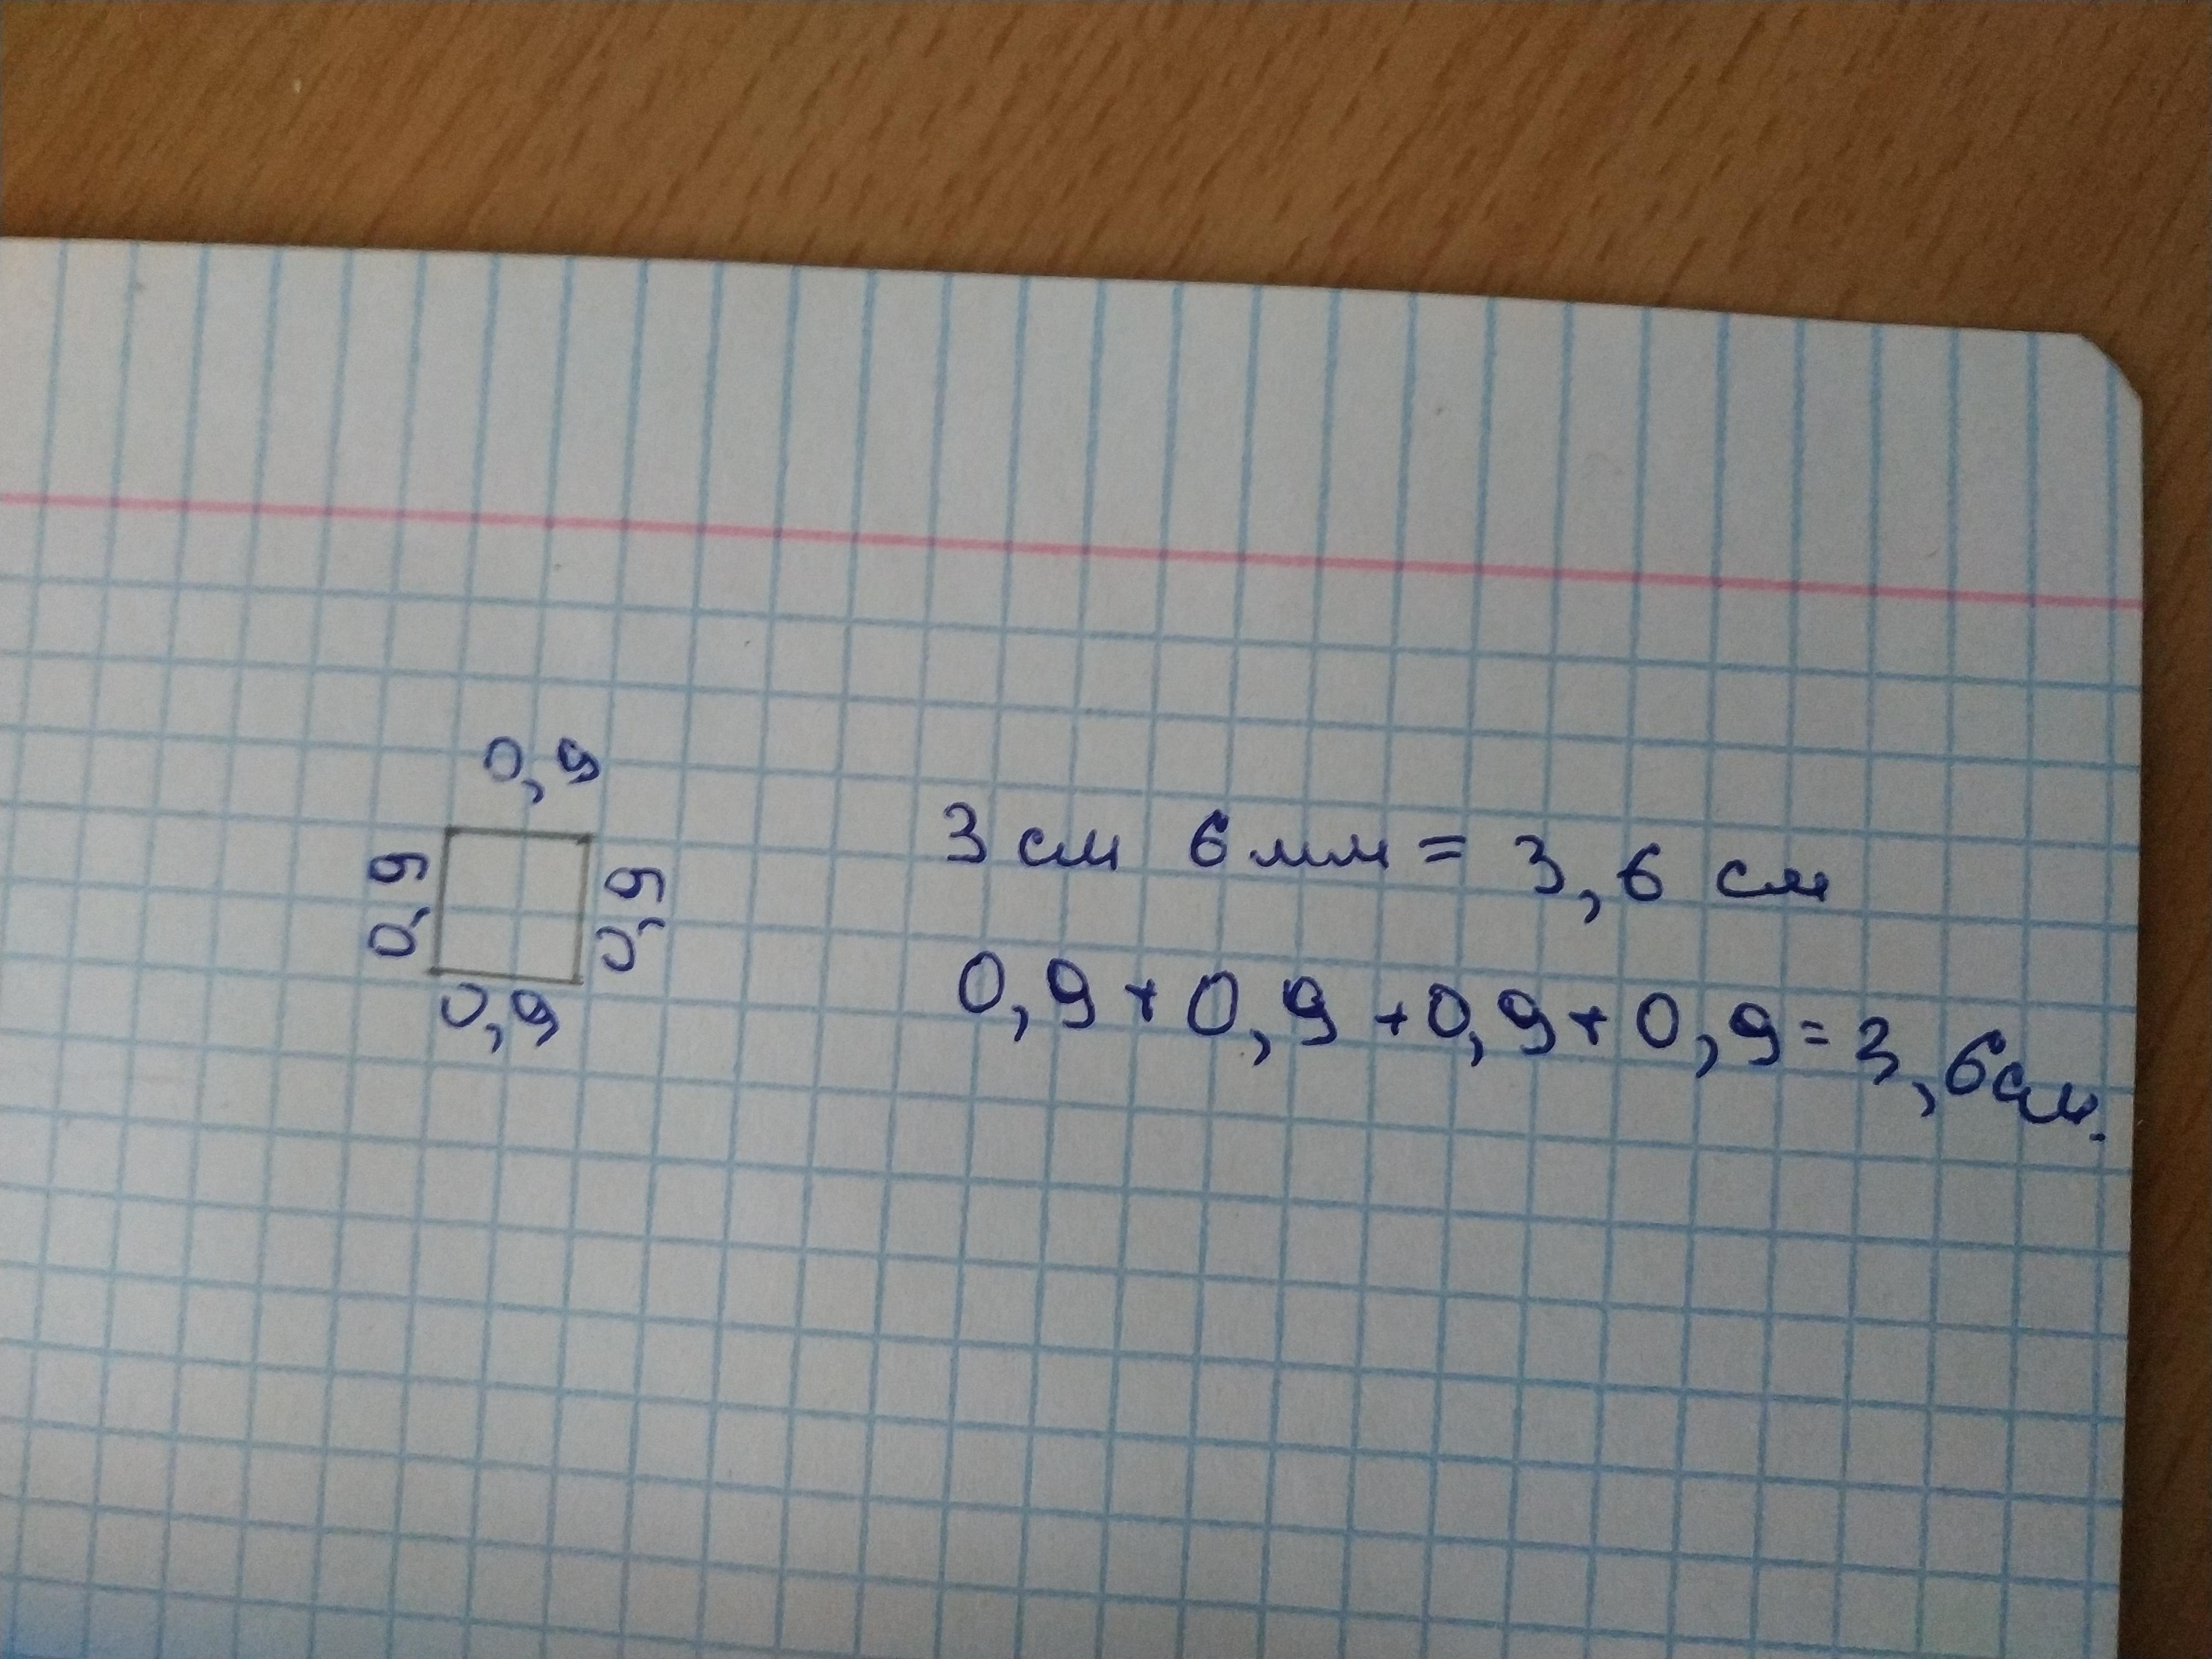 0,9
0,9
0,9
0,9
3 см 6 мм = 3,6 см
0,9+0,9+0,9+0,9=3,6см.